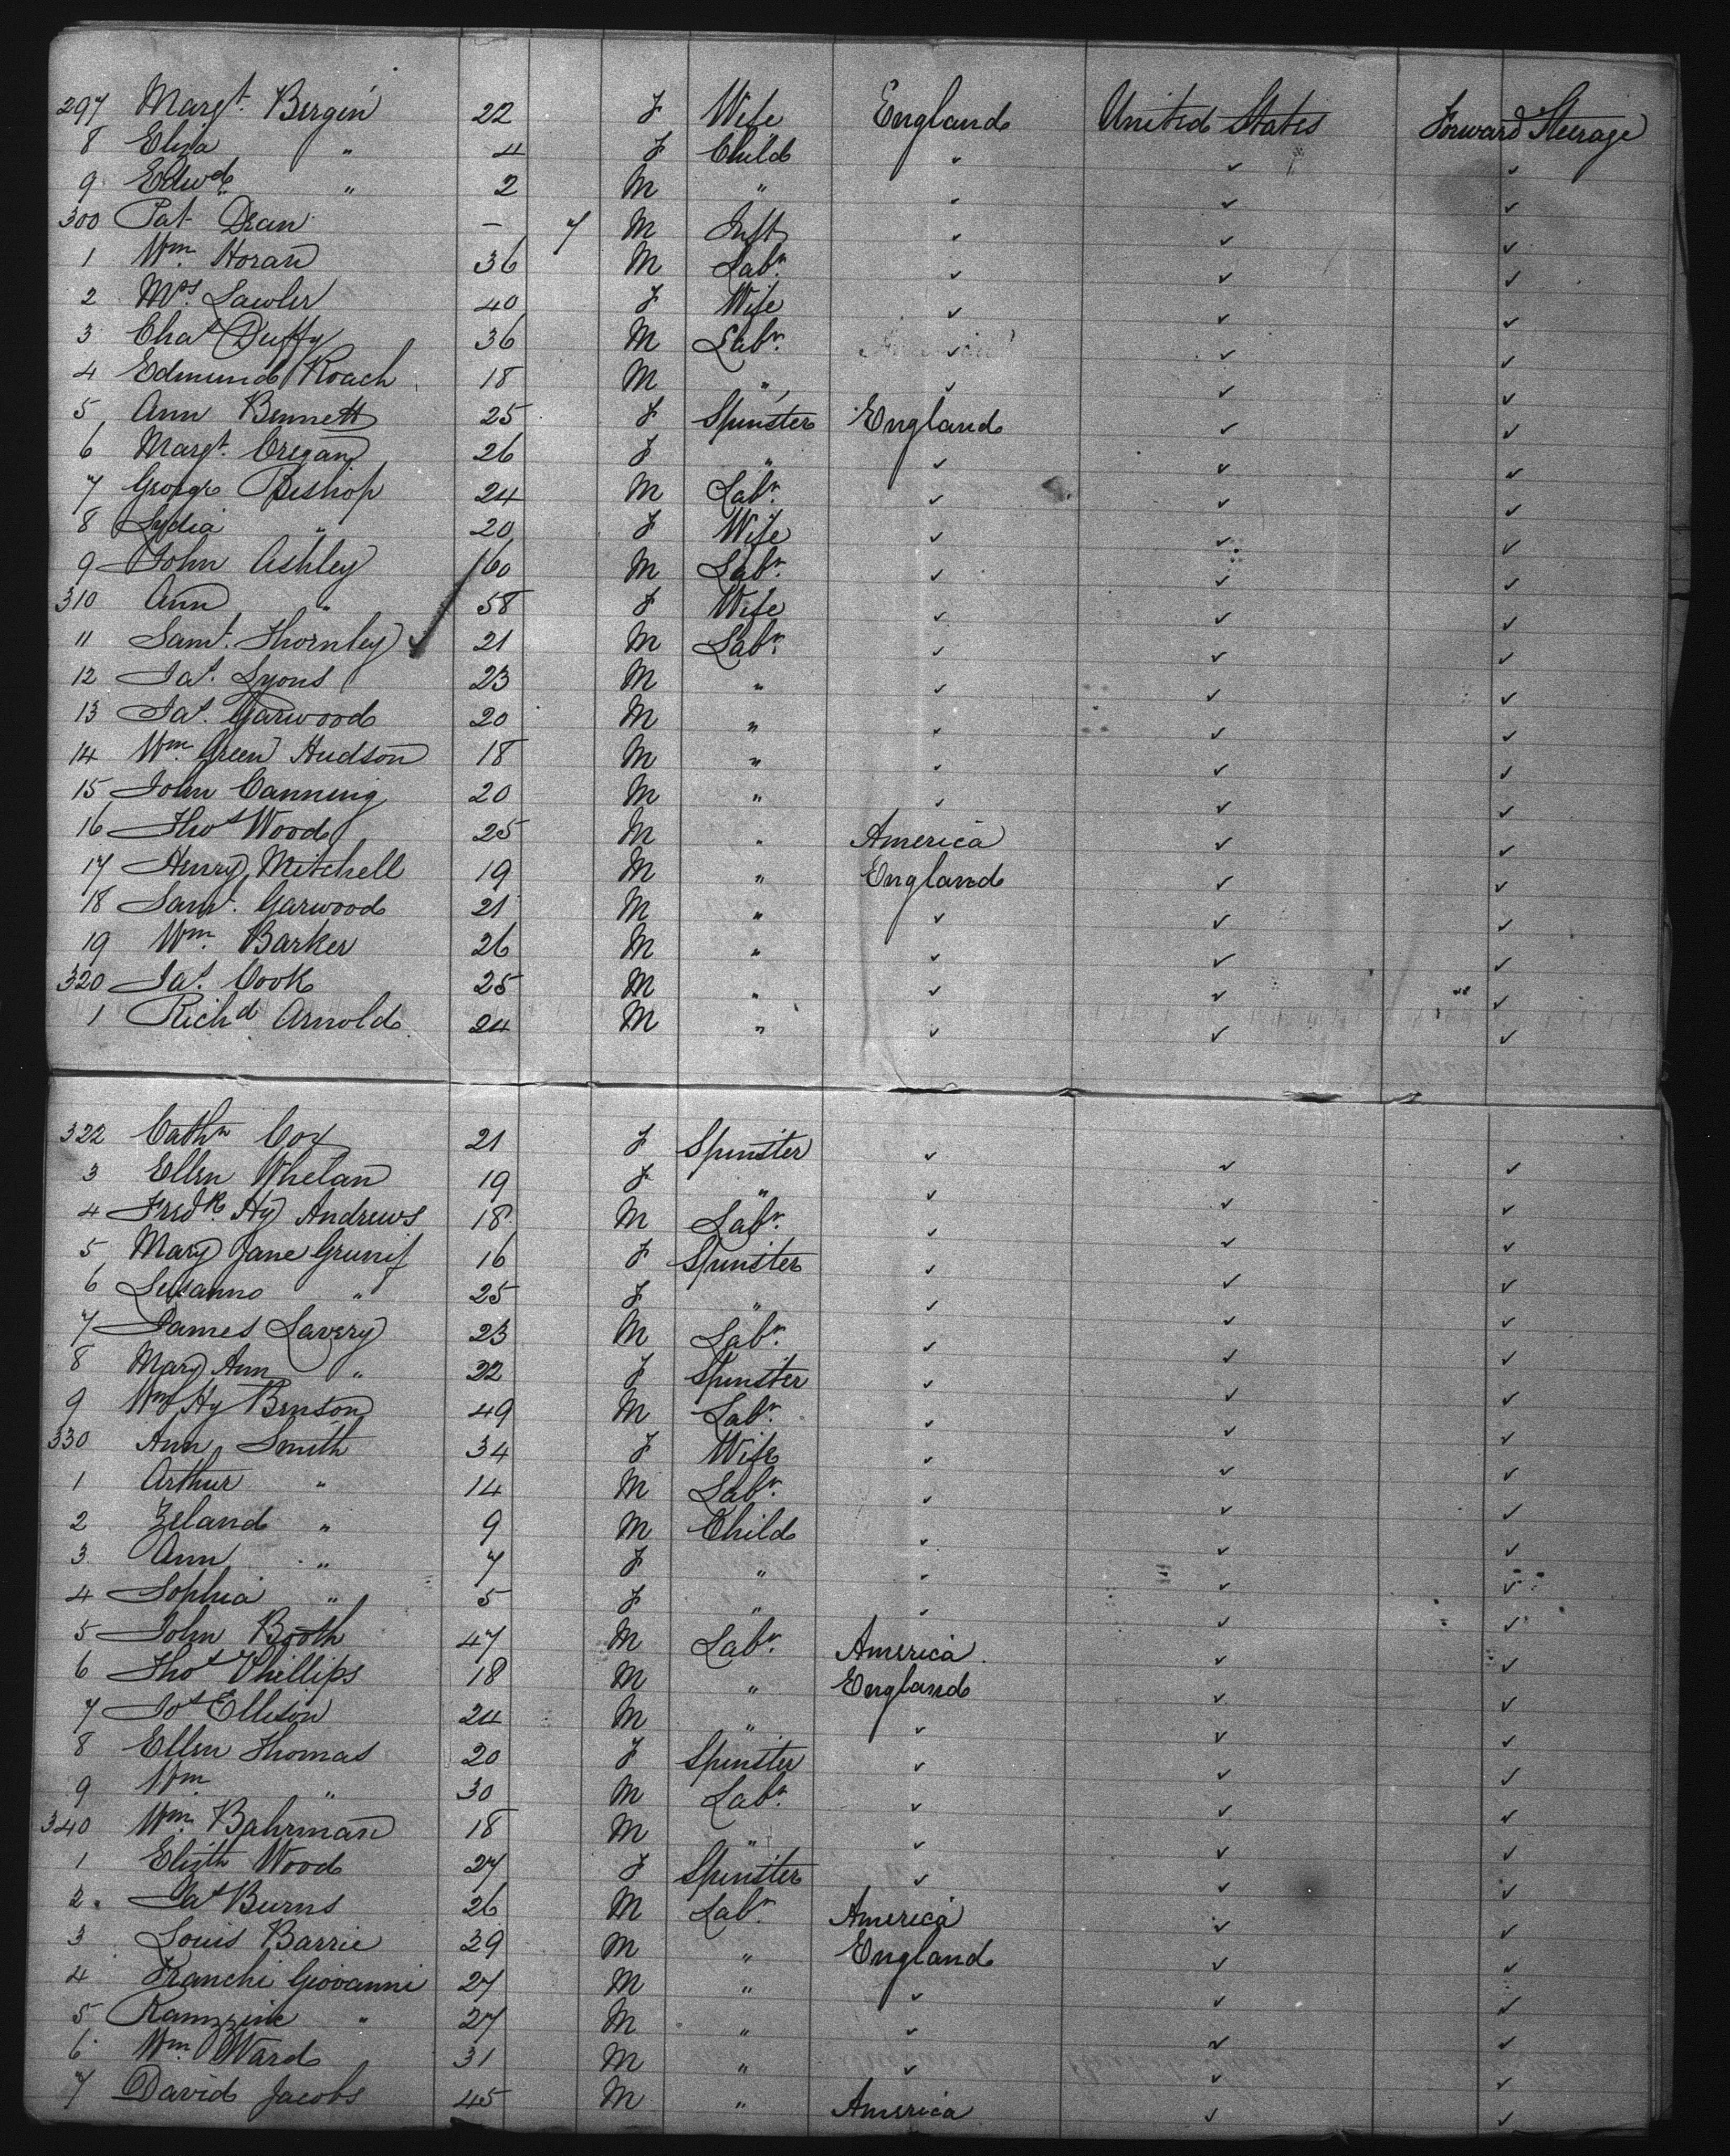 297 Margt. Bergin 22 F Wife England United States Forward Steerage
8 Eliza " 4 F Child ✓ ✓ ✓
9 Edwd. " 2 M " ✓ ✓ ✓
300 Pat Dean – 7 M Inft ✓ ✓ ✓
1 Wm. Horan 36 M Labr. ✓ ✓ ✓
2 Mrs. Lawler 40 F Wife ✓ ✓ ✓
3 Chas Duffy 36 M Labr. ✓ ✓ ✓
4 Edmund Roach 18 M " ✓ ✓ ✓
5 Ann Bennett 25 F Spinster England ✓ ✓
6 Margt. Cregan 26 F " ✓ ✓ ✓
7 George Bishop 24 M Labr. ✓ ✓ ✓
8 Lydia " 20 F Wife ✓ ✓ ✓
9 John Ashley 60 M Labr. ✓ ✓ ✓
310 Ann " 58 F Wife ✓ ✓ ✓
11 Saml. Thornley ✓ 21 M Labr. ✓ ✓ ✓
12 Jas. Lyons 23 M " ✓ ✓ ✓
13 Jas. Garwood 20 M " ✓ ✓ ✓
14 Wm. Green Hudson 18 M " ✓ ✓ ✓
15 John Canning 20 M " ✓ ✓ ✓
16 Thos Wood 25 M " America ✓ ✓
17 Henry Mitchell 19 M " England ✓ ✓
18 Saml. Garwood 21 M " ✓ ✓ ✓
19 Wm. Barker 26 M " ✓ ✓ ✓
320 Jas. Cook 25 M " ✓ ✓ ✓
1 Richd Arnold 24 M " ✓ ✓ ✓
322 Cathn Cox 21 F Spinster ✓ ✓ ✓
3 Ellen Whelan 19 F " ✓ ✓ ✓
4 Fredk. Hy Andrews 18 M Labr. ✓ ✓ ✓
5 Mary Jane 16 F Spinster ✓ ✓ ✓
6 Susanno " 25 F " ✓ ✓ ✓
7 James Lavery 23 M Labr. ✓ ✓ ✓
8 Mary Ann " 22 F Spinster ✓ ✓ ✓
9 Wm Hy Benson 49 M Labr. ✓ ✓ ✓
330 Ann Smith 34 F Wife ✓ ✓ ✓
1 Arthur " 14 M Labr. ✓ ✓ ✓
2 Zeland " 9 M Child ✓ ✓ ✓
3 Ann " 7 F " ✓ ✓ ✓
4 Sophia " 5 F " ✓ ✓ ✓
5 John Booth 47 M Labr. America ✓ ✓
6 Thos Phillips 18 M " England ✓ ✓
7 Jos Ellison 24 M " ✓ ✓ ✓
8 Ellen Thomas 20 F Spinster ✓ ✓ ✓
9 Wm. " 30 M Labr. ✓ ✓ ✓
340 Wm. Bahrman 18 M " ✓ ✓ ✓
1 Elizth Wood 27 F Spinster ✓ ✓ ✓
2 Jas Burns 26 M Labr. America ✓ ✓
3 Louis Barrie 29 M " England ✓ ✓
4 Franchi Giovanni 27 M " ✓ ✓ ✓
5 " 27 M " ✓ ✓ ✓
6 Wm. Ward 31 M " ✓ ✓ ✓
7 David Jacobs 45 M " America ✓ ✓